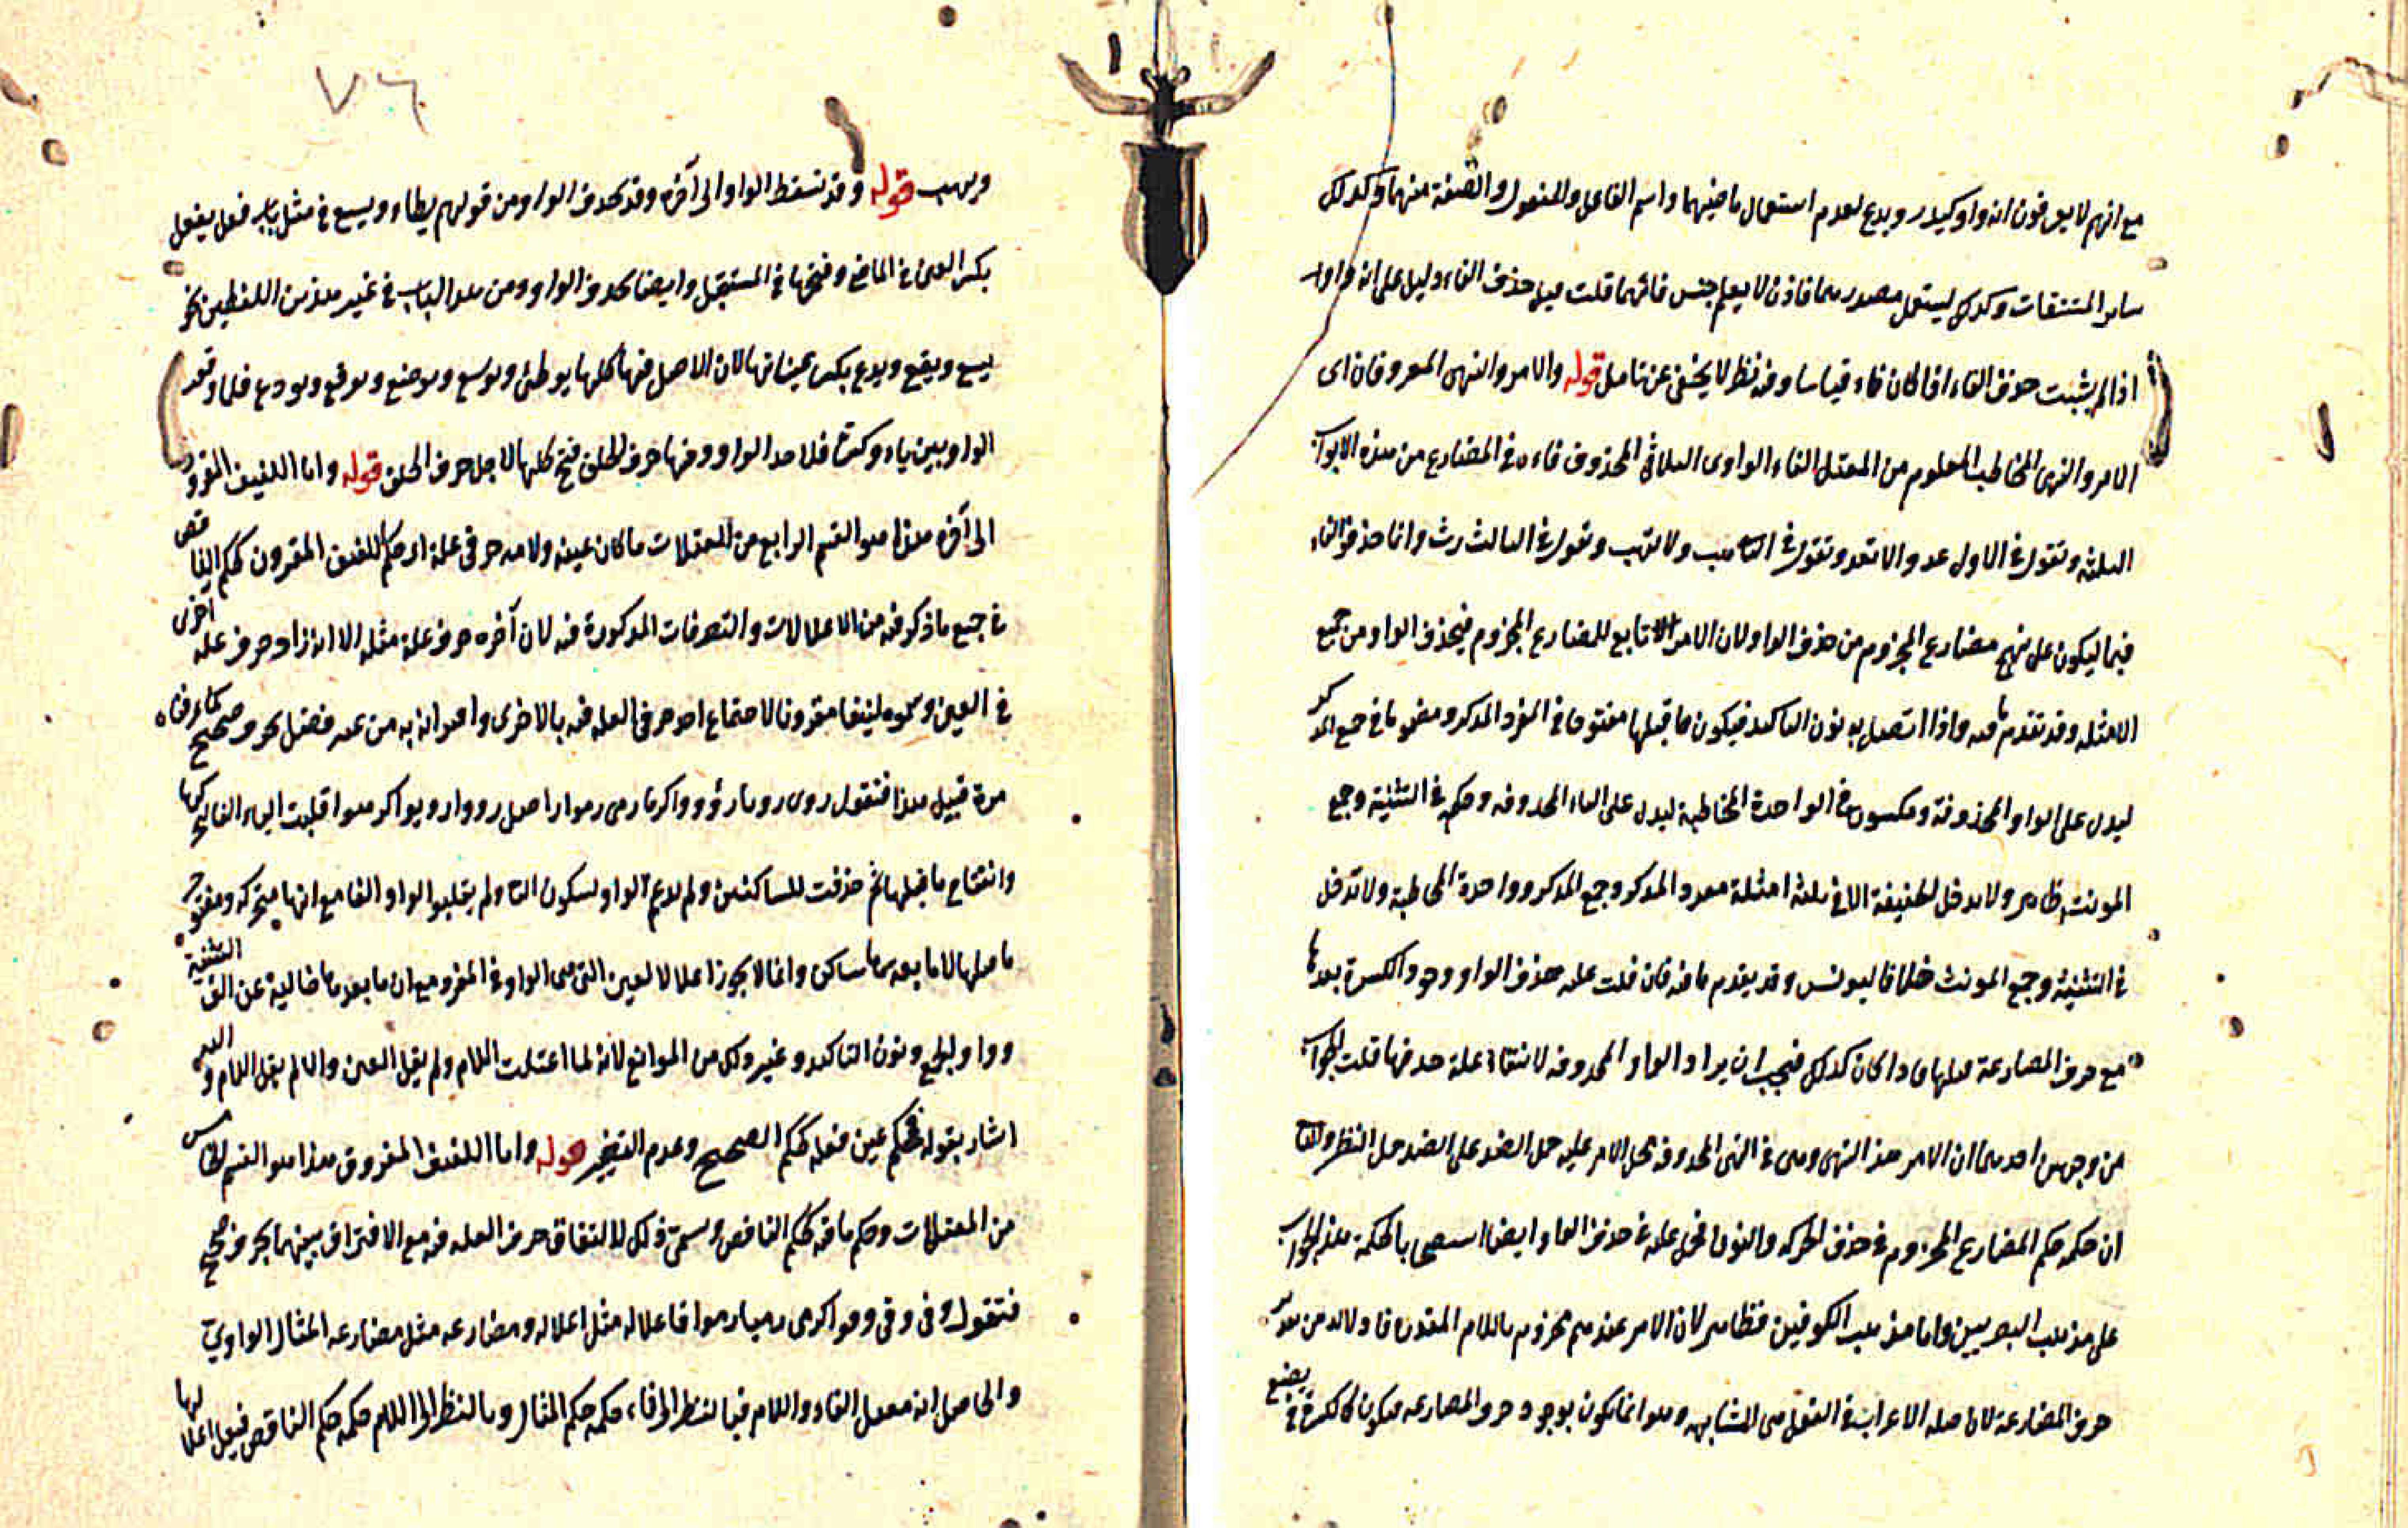 مع انهم لا يعرفون انه واو كيذر ويدع لعدم استعمال ماضيهما واسم الفاعل والمفعول والصفة منهما وكذلك
ساير المشتقات وكذلك ليستعمل مصدرهما فاذن لا يعلم جنس فائهما قلت فيه حذف الفاء دليل على انه واو
اذ لم يثبت حذف الفاء اذا كان فاء قياسا وفيه نظر لا يخفى عن تامل قوله والامر والنهى المعروفان اى
الامر والنهى المخاطب المعلوم من المعتل الفاء الواوى الثلاثى المحذوف فاءه فى المضارع من هذه الابواب
الثلثة وتقول فى الاول عد والا تعد وتقول فى الثانى هب ولا تهب وتقول فى الثالث رث وانما حذف الفاء
فيها ليكون على نهج مضارع المجزوم من حذف الواو لان الامر تابع للمضارع المجزوم فيحذف الواو من جميع
الامثلة وقد تقدم ما فيه واذا اتصل به نون التاكيد فيكون ما قبلها مفتوحا فى المفرد المذكر ومضموما فى جمع المذكر
ليدل على الواو المحذوفة ومكسورا فى الواحدة المخاطبة ليدل على الياء المحذوفة وحكمه فى التثنية وجمع
المونث ظاهر ولا يدخل الخفيفة الا فى ثلثة امثلة مفرد المذكر وجمع المذكر وواحدة المخاطبة ولا تدخل
فى التثنية وجمع المونث خلافا ليونس وقد تقدم ما فيه فان قلت علة حذف الواو وجود الكسرة بعدها
مع حرف المضارعة قبلها فاذا كان كذلك فيجب ان يراد الواو المحذوفة لانتفاء علة حذفها قلت الجواب
من وجهين احدهما ان الامر ضد النهى وهى فى النهى المحذوفة فحمل الامر عليه حمل الضد على الضد حمل النظير والثانى
ان حكمه حكم المضارع المجزوم فى حذف الحركة والنون فحمل عليه فى حذف الفاء وايضا بالحكمة هذا الجواب
على مذهب البصريين واما مذهب الكوفيين فظاهر لان الامر عندهم مجزوم باللام المقدرة فلابد من تقدير
حرف المضارعة لان علة الاعراب فى الفعل هى المشابهة وهو انما يكون بوجود حرف المضارعة فيكون كالكسرة فى يضع
ويهب قوله وقد تسقط الواو الى آخره وقد تحذف الواو من قولهم يطاء ويسع فى مثل باب فعل يفعل
بكسر العين فى الماضى وفتحها فى المستقبل وايضا تحذف الواو ومن هذا الباب فى غير هذين اللفظين نحو
يسع ويقع ويدع بكسر عيناتها لان الاصل فيها كلها يوطئ ويوسع ويوضع ويوقع ويودع فلما وقع
الواو بين ياء وكسرة فلا حذف الواو وفيها حرف الحلق فتح كلها لاجل حرف الحلق قوله واما اللفيف المقرون
الى آخره هذا هو القسم الرابع من المعتلات ما كان عينه ولامه حرفى علة اى حكم اللفيف المقرون كحكم الناقص
فى جميع ما ذكر فيه من الاعلالات والتصرفات المذكورة فيه لان آخره حرف علة مثله الا انه زاد حرف علة اخرى
فى العين وسموه لفيفا مقرونا لاجتماع احد حرفى العلة فيه بالاخرى واقترانه به من غير فصل بحرف صحيح كما عرفناه
من قبيل هذا فتقول روى رويا رووا كرمى رميا رموا اصل رووا رويوا كرميوا قلبت الياء الفا لتحركها
وانفتاح ما قبلها ثم حذفت للساكنين ولم يدغم الواو لسكون الثانى ولم يقلبوا الواو الفا مع انها متحركة ومفتوح
ما قبلها لان ما بعدها ساكن وانما لا يجوز اعلال العين التى هى الواو فى المفرد مع ان ما بعدها خالية عن الف التثنية
وواو الجمع ونون التاكيد وغير ذلك من الموانع لانه لما اعتلت اللام ولم يعل العين والا لم يعل اللام و اليه
اشار بقوله فحكم عين فعله كحكم الصحيح وعدم التغيير قوله واما اللفيف المفروق هذا هو القسم الخامس
من المعتلات وحكم لامه كحكم الناقص وسمى ذلك لالتفاف حرف العلة فيه مع الافتراق بينهما بحرف صحيح
فتقول وقى وقيا وقوا كرمى رميا رموا فاعلاله مثل اعلاله ومضارعه مثل مضارعه المثال الواوى
والحاصل انه معتل الفاء واللام فبالنظر الى الفاء حكمه حكم المثال وبالنظر الى اللام حكمه حكم الناقص فيعل اعلالها
٧٦